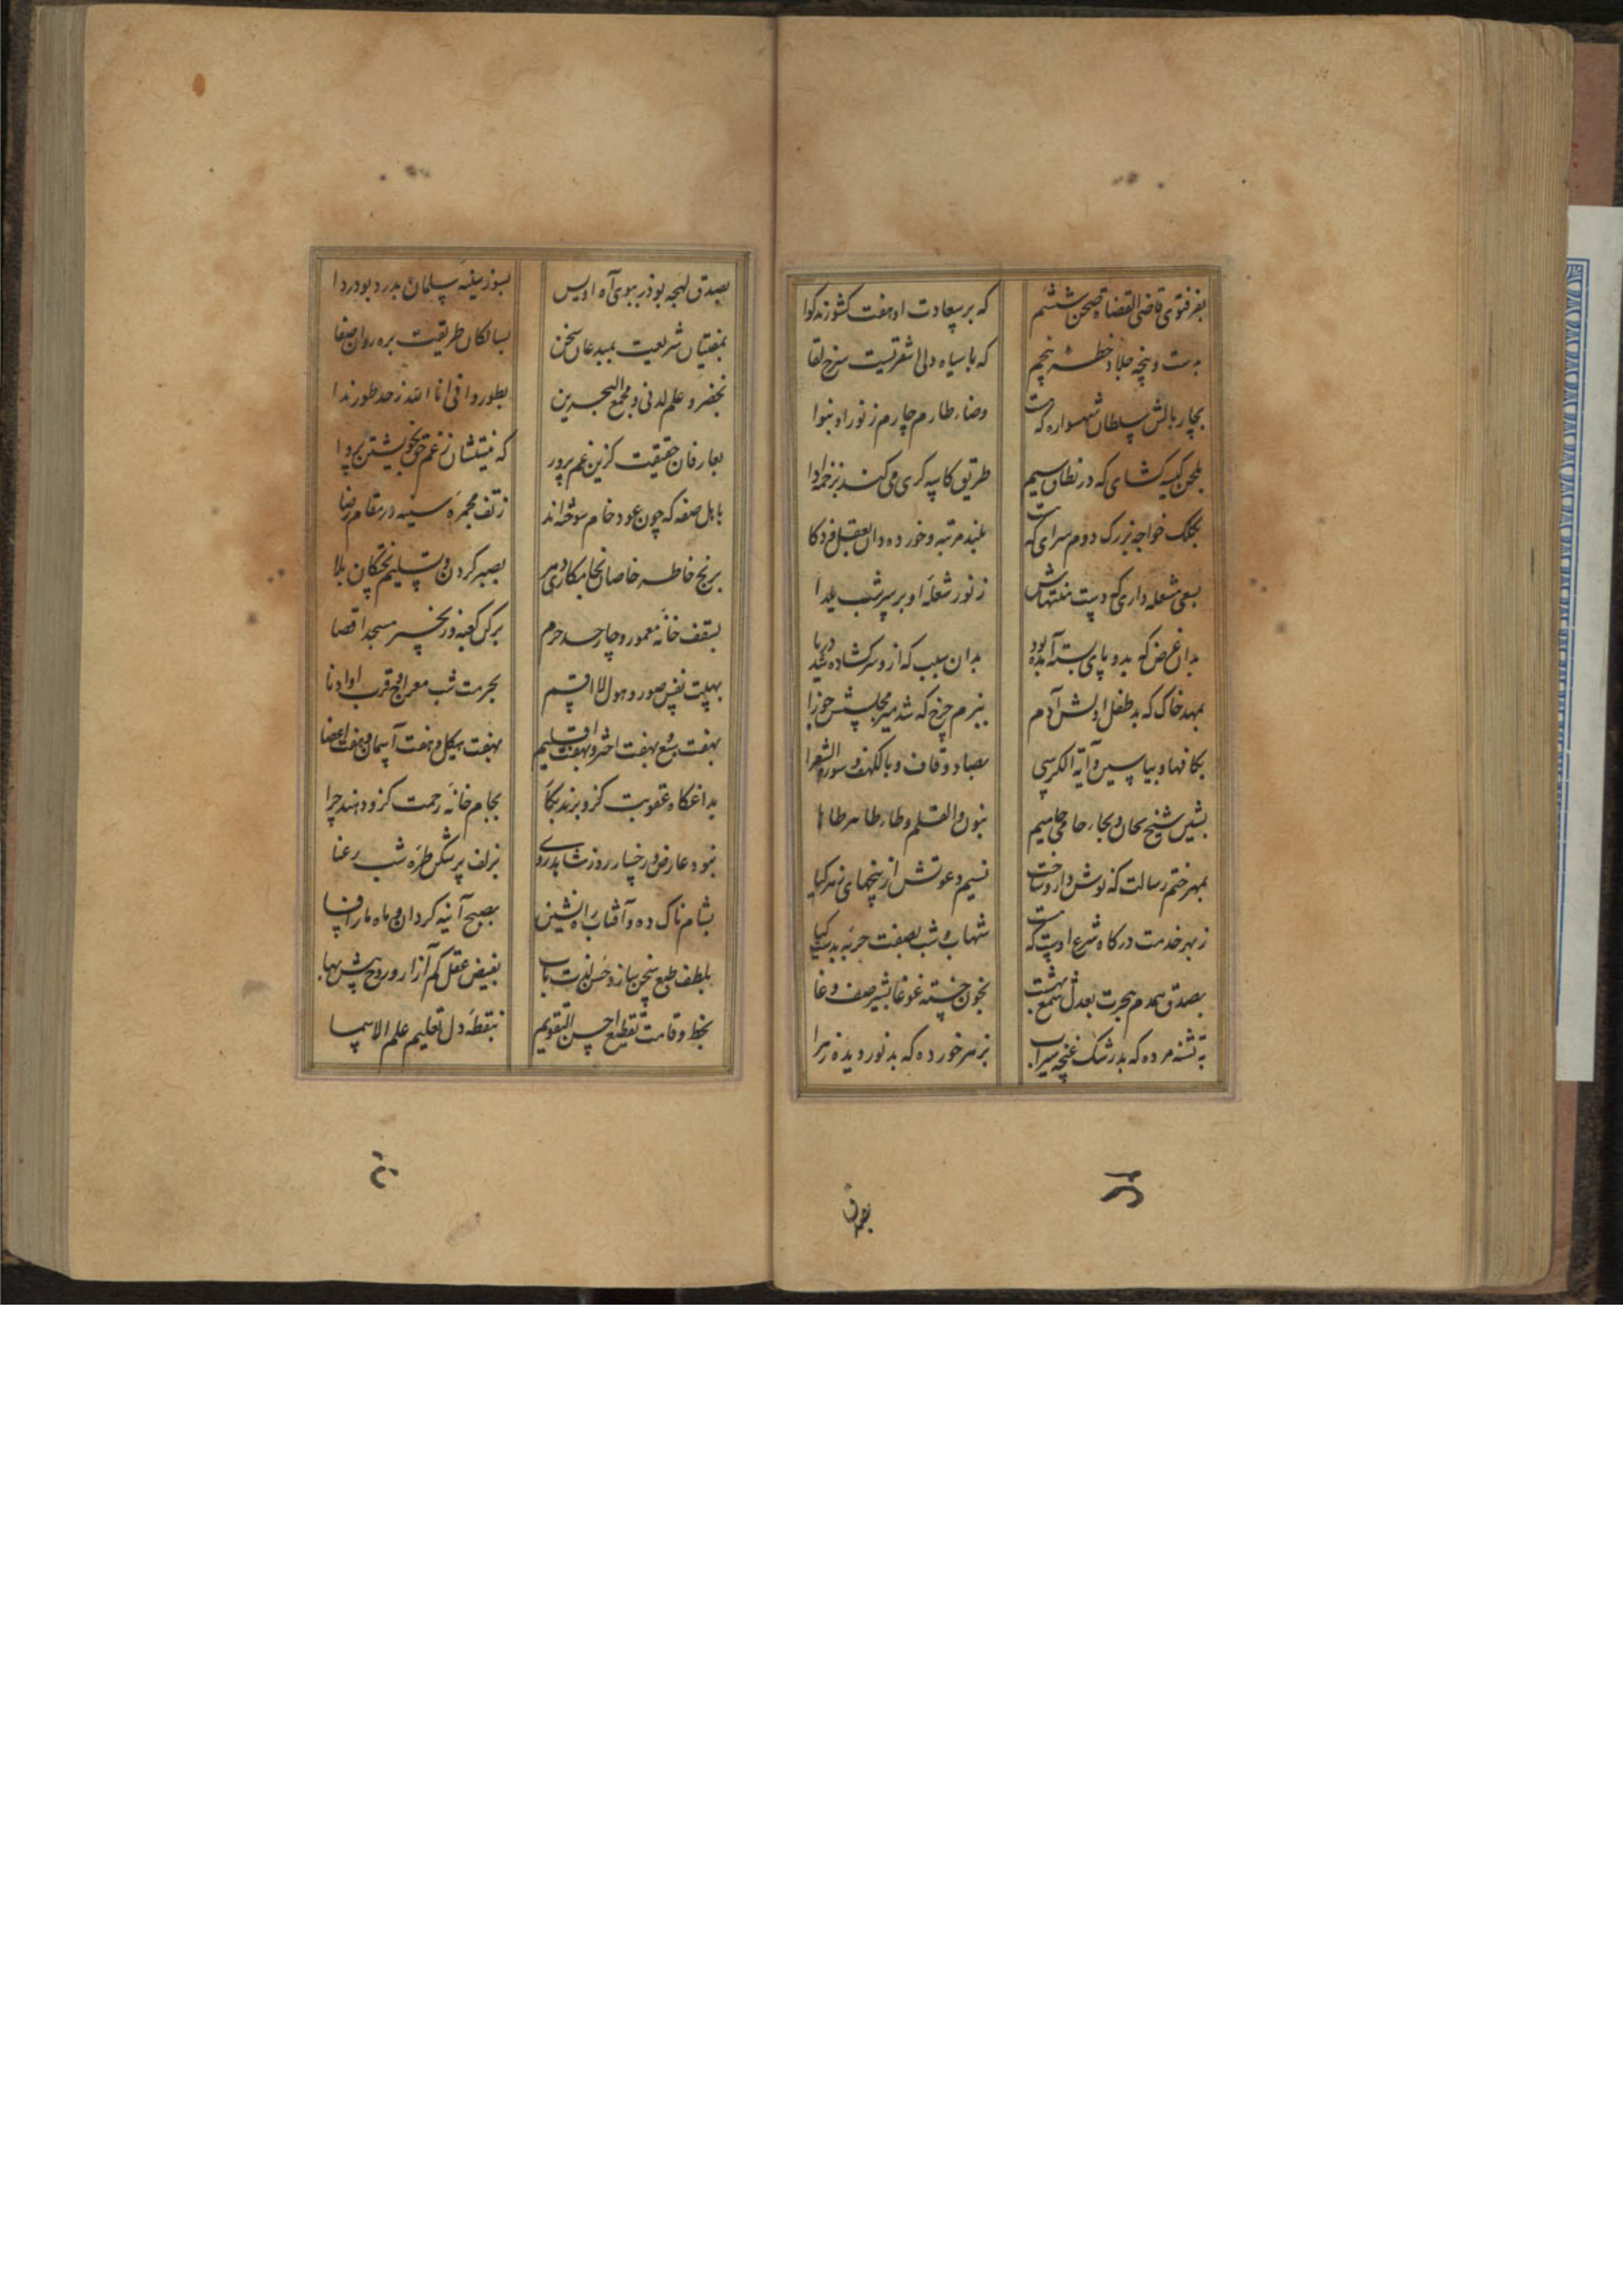 بفر فتوی قاضی القضاة صحن ششم
که بر سعادت او هفت کشورند گوا
بدست و پنجه جلاد خطه پنجم
که با سیاه دلی اشقریست سرخ لقا
بچار بالش سلطان شهسواره که هست
وضاء طارم چارم ز نور او بنوا
بلحن کیسه کشای که در نطاق سیم
طریق کاسه کری می کند بزخمه ادا
بکلک خواجه بزرک دوم سرای که هست
بلند مرتبه و خورده دان بعقل و ذکا
بسعی مشعله داری که دست منتهاش
ز نور شعله او بر سر شب یلدا
بدان غرض که بدو پای بسته آمده بود
بدان سبب که ازو سر کشاده شد دریا
بمهد خاک که بد طفل اولش آدم
ببزم چرخ که شد میر مجلسش جوزا
بکاف‌ها و بیاسین و آیة الکرسی
بصاد و قاف و بالکهف و سورة الشعرا
بشین شیخ بحاء حامی حامیم
بنون والقلم و طاء طاهر طاها
بمهر ختم رسالت که نوش دارو ساخت
نسیم دعوتش از بیخهای زهر کیا
ز بهر خدمت درکاه شرع اوست که هست
شهاب و شب بصفت حربه بدست
بصدق همدم هجرت بعدل شمع بهشت
بخون خسته غوغا بشیر صف وغا
به تشنه مرده که بد رشک غنچه سیراب
بزهر خورده که بد نور دیده زهرا
بصدق
بصدق لهجه بوذر ببوی آه اویس
بسوز سینه سلمان بدرد بودردا
بمفتیان شریعت بمبدعان سخن
بسالکان طریقت بره روان صفا
بخضر و علم لدنی و مجمع البحرین
بطور و انی انا الله ز حد طور ندا
بعارفان حقیقت کزین غم پرور
که نیستشان ز غم حق بخویشتن پروا
باهل صفه که چون عود خام سوخته اند
ز تف مجمره سینه در مقام رضا
برنج خاطر خاصان نجامکاری دهر
بصبر کردن و تسلیم خستکان بلا
بسقف خانه معمور و چار حد حرم
برکن کعبه و زنجیر مسجد اقصا
بهیبت نفس صور و هول لا اقسم
بحرمت شب معراج و قرب او ادنا
بهفت سبع بهفت اختر و بهفت اقلیم
بهفت هیکل و هفت آسمان و هفت اعضا
بداغکاه عقوبت کزو برند بکا
بجام خانه رحمت کزو دهند چرا
بنور عارض و رخسار روز شاهد روی
بزلف پرشکن طره شب رعنا
بشام تاک ده و آفتاب راه نشین
بصبح آینه کردان و ماه مار افسا
بلطف طبع سخن ساز و حسن لذت یاب
بفیض عقل کم آزار و روح بیش بها
بخط و قامت تقطیع احسن التقویم
بنقطه دل تعلیم علم الاسما